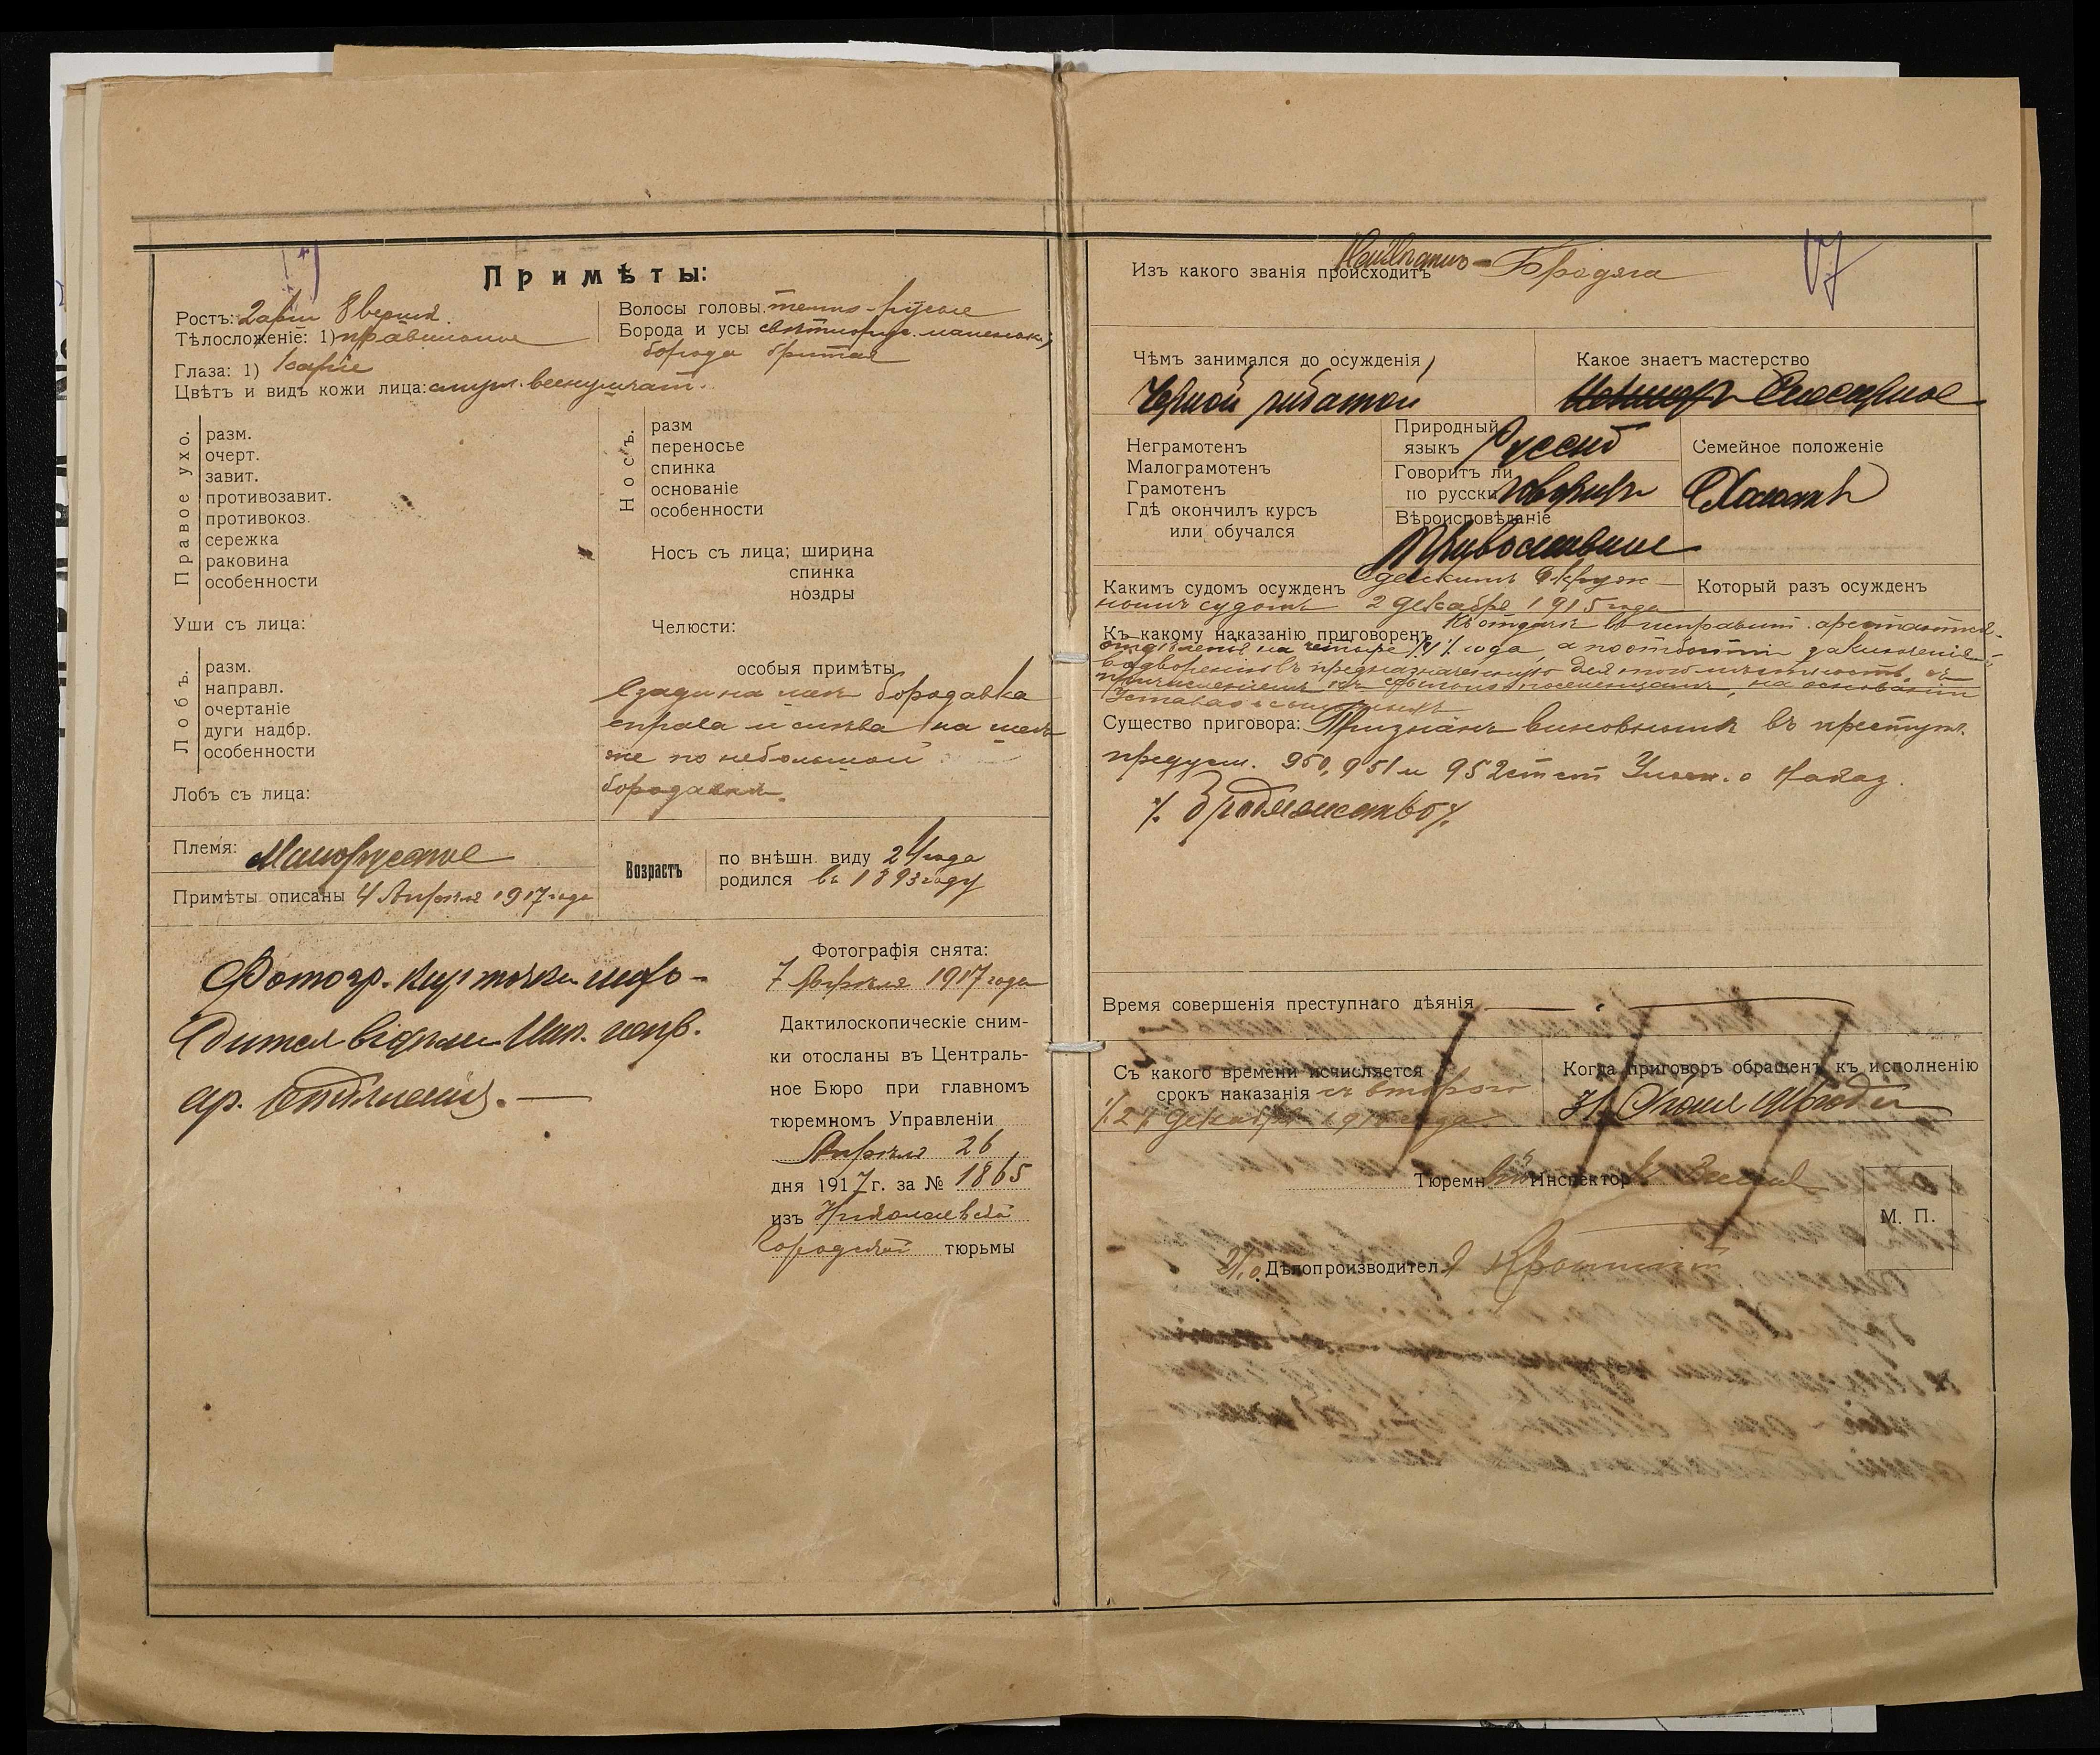 Примѣты:
Ростъ: 2 арш 8 верш.
Тѣлосложеніе: 1) правильное
Глаза: 1) Каріе
Цвѣтъ и видъ кожи лица: смугл. веснушчат.
Волосы головы темно-русые
Борода и усы свѣтлорус. маленьк.,
борода бритая
Правое ухо.
разм.
очерт.
завит.
противозавит.
противокоз.
сережка
раковина
особенности
Носъ.
разм
переносье
спинка
основаніе
особенности
Носъ съ лица; ширина
спинка
ноздры
Уши съ лица:
Челюсти:
Лобъ.
разм.
направл.
очертаніе
дуги надбр.
особенности
Лобъ съ лица:
особыя примѣты
Сзади на шеѣ бородавка
справа и слѣва на шеѣ
же по небольшой
бородавкѣ.
Племя: Малорусское
Примѣты описаны 4 Апрѣля 1917 года
Возрастъ
по внѣшн. виду 24 года
родился въ 1893 году
Фотогр. карточка нахо-
дится въ дѣлѣ Ник. испр.
ар. отдѣленія. —
Фотографія снята:
7 Апрѣля 1917 года
Дактилоскопическіе сним-
ки отосланы въ Централь-
ное Бюро при главномъ
тюремномъ Управленіи
Апрѣля 26
дня 1917 г. за № 1865
изъ Николаевской
Городской тюрьмы
17
Изъ какого званія происходитъ Бродяга
Чѣмъ занимался до осужденія
Черной работой
Какое знаетъ мастерство
Слесарное
Неграмотенъ
Малограмотенъ
Грамотенъ
Гдѣ окончилъ курсъ
или обучался
Природный
языкъ Русскій
Говоритъ ли
по русски говоритъ
Вѣроисповѣданіе
Православное
Семейное положеніе
Холостъ
Каким судомъ осужденъ Одесскимъ Окруж-
нымъ судомъ 2 декабря 1915 года
Который разъ осужденъ
Къ какому наказанію приговоренъ Къ отдачѣ въ исправит. арестантск.
отдѣленія на четыре /4/ года, а по отбытіи заключенія
водворенію въ предназначенную для того мѣстность, съ
причисленіемъ къ ссыльно поселенцамъ, на основаніи
Устава о ссыльныхъ
Существо приговора: Признанъ виновнымъ въ преступл.
предусм. 950, 951 и 952 ст ст Улож. о Наказ.
/. Бродяжество /.
Время совершенія преступнаго дѣянія
Съ какого времени исчисляется
срокъ наказанія съ второго
/. 2 /. декабря 1915 года.
Когда приговоръ обращенъ къ исполненію
Тюремный Инспекторъ
М. П.
И. о. Дѣлопроизводителя